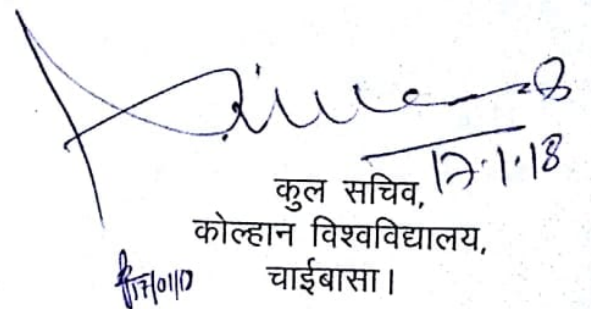 17.1.18
कुल सचिव,
कोल्हान विश्वविद्यालय,
17/01/18 चाईबासा।